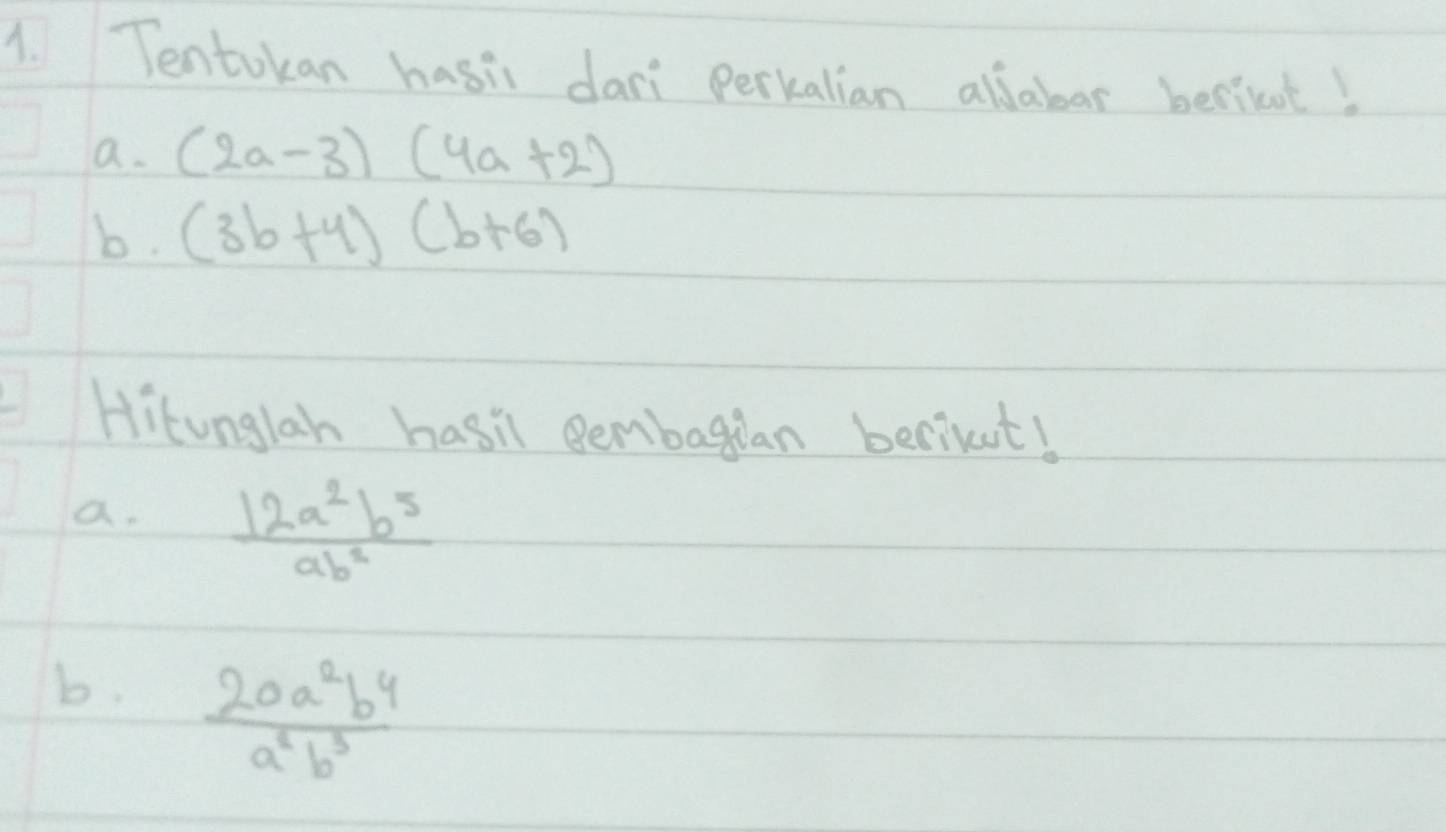 1. Tentukan hasil dari perkalian aljabar berikut!
a. (2a-3) (4a+2)
b. (3b+4) (b+6)
2 Hitunglah hasil pembagian berikut!
a. 12a²b⁵
ab²
b. 20a²b⁴
a²b³